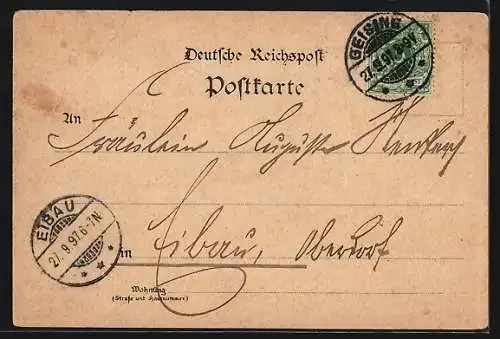 Deutsche Reichspost
Postkarte
GEISING
27.9.97
An
Fräulein Auguste
EIBAU
27.9.97.6-7N
in
Eibau, Oberdorf
Wohnung
(Straße und Hausnummer)